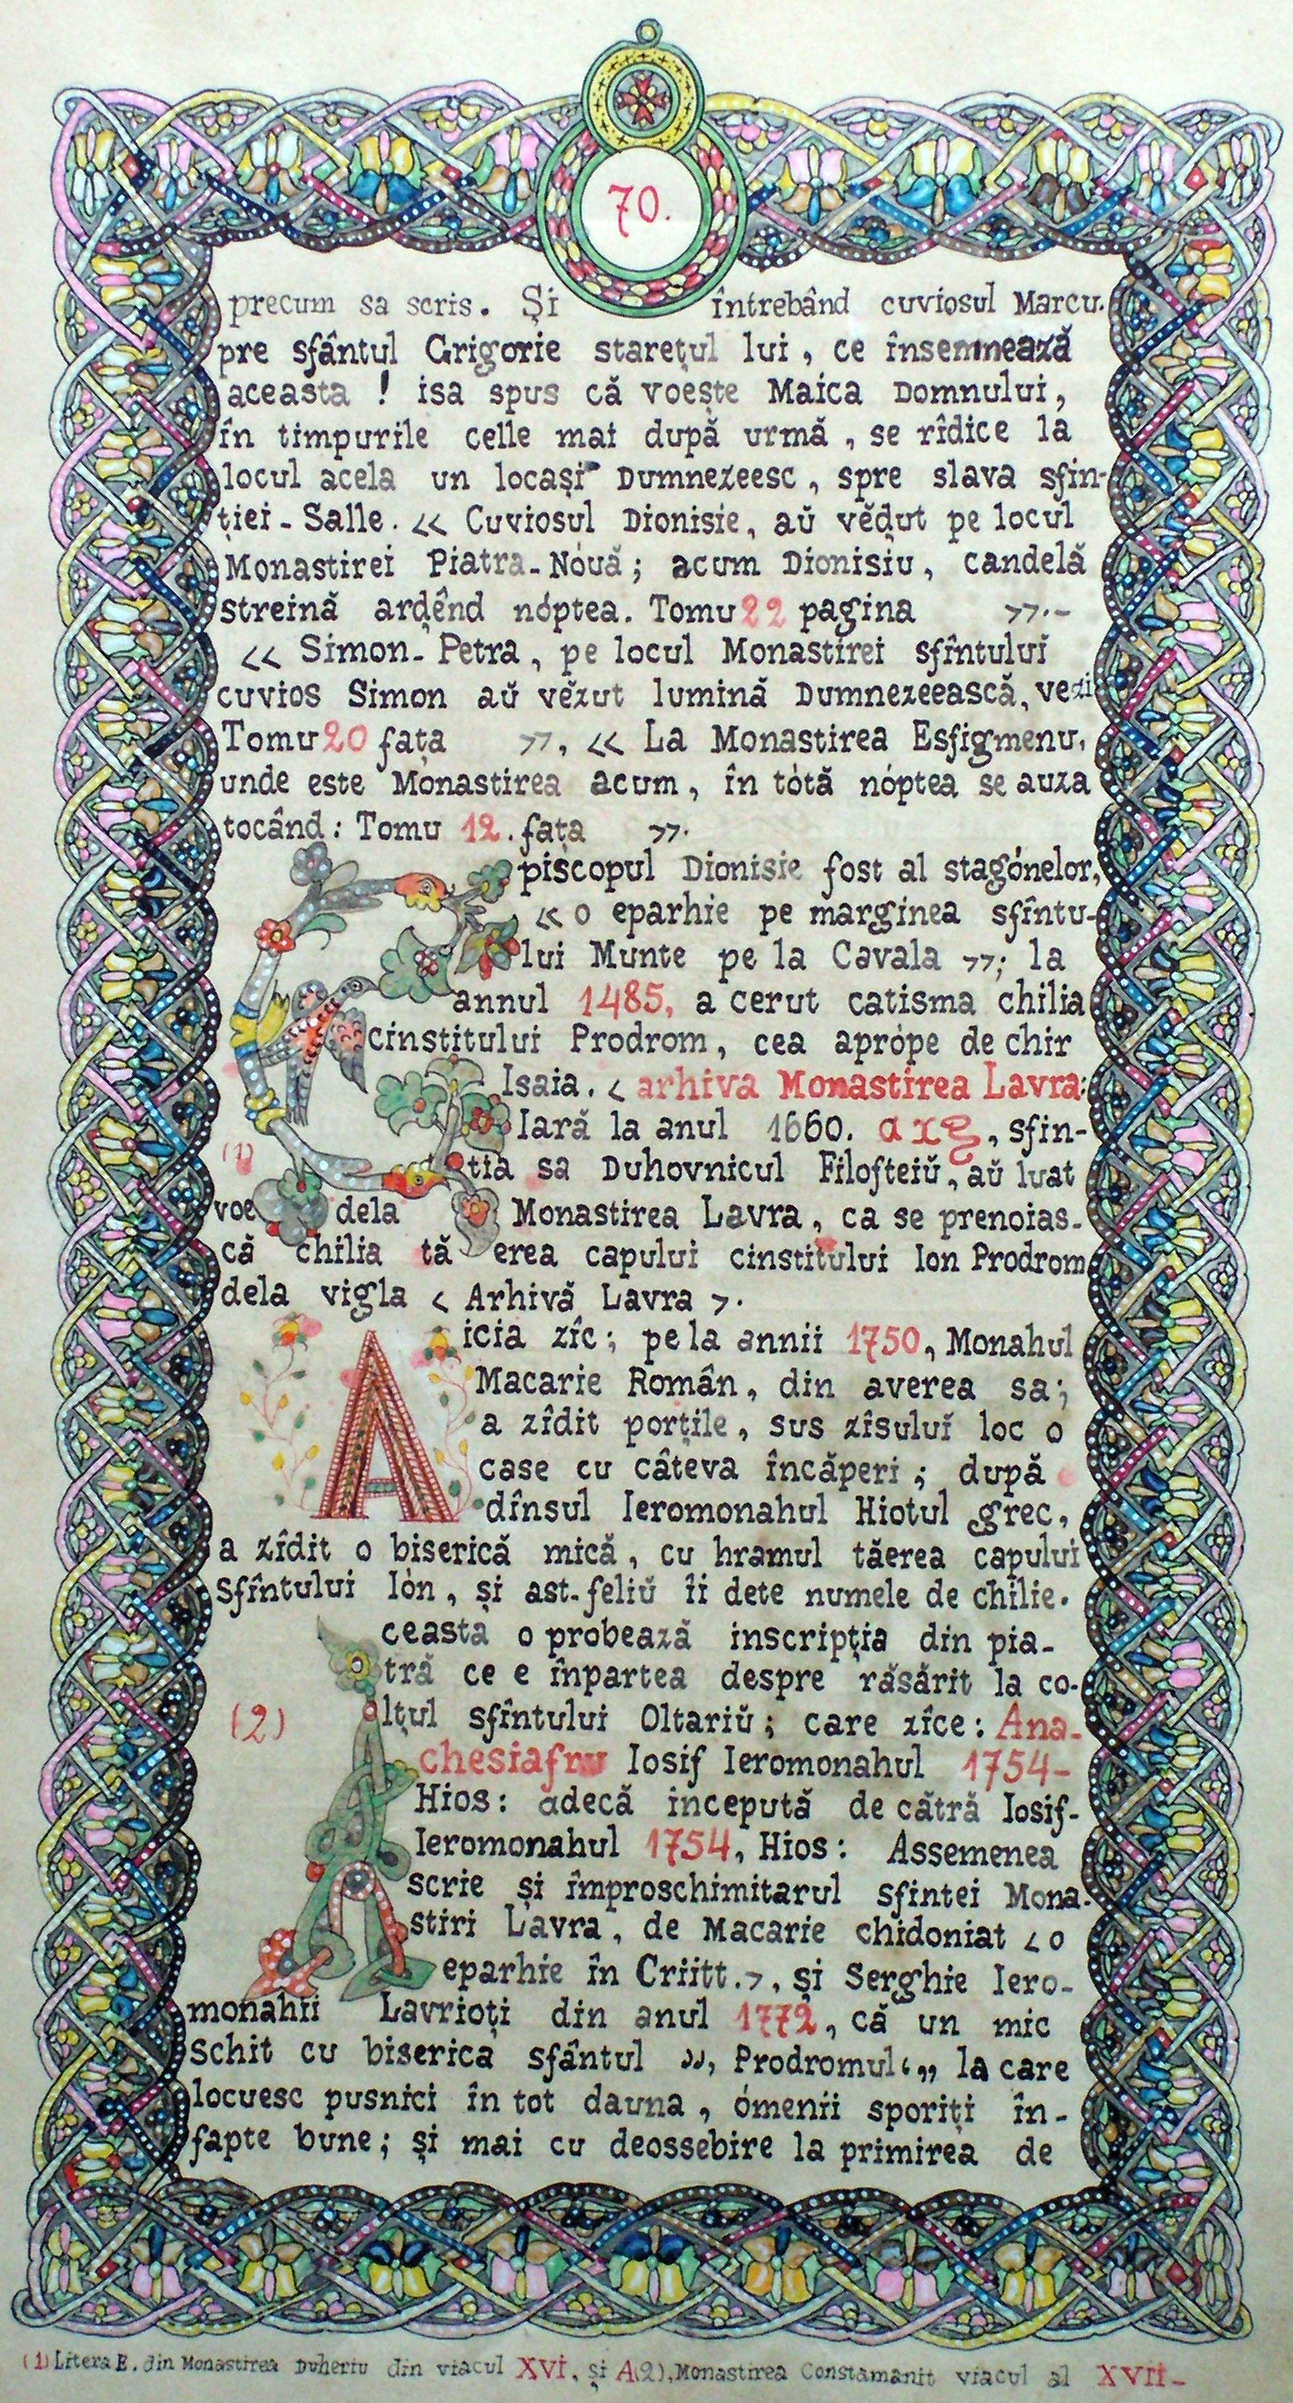 70.
precum sa scris. Și întrebând cuviosul Marcu.
pre sfântul Grigorie starețul lui, ce însemnează
aceasta ! isa spus că voește Maica Domnului,
în timpurile celle mai după urmă, se rîdice la
locul acela un locași Dumnezeesc, spre slava sfin-
ției-Salle. << Cuviosul Dionisie, aŭ vĕḑut pe locul
Monastirei Piatra-Nóuă; acum Dionisiu, candelă
streină arḑênd nóptea. Tomu 22 pagina >>.-
<< Simon-Petra, pe locul Monastirei sfîntuluĭ
cuvios Simon aŭ vĕzut lumină Dumnezeească, vezi
Tomu 20 fața >>, << La Monastirea Esfigmenu,
unde este Monastirea acum, în tótă nóptea se auza
tocând: Tomu 12. fața >>.
Episcopul Dionisie fost al stagónelor,
<< o eparhie pe marginea sfîntu-
lui Munte pe la Cavala >>; la
annul 1485, a cerut catisma chilia
cinstitului Prodrom, cea aprópe de chir
Isaia. < arhiva Monastirea Lavra:
Iară la anul 1660. αχξ, sfin-
(1) tia sa Duhovnicul Filofteiŭ, aŭ luat
voe dela Monastirea Lavra, ca se prenoias-
că chilia tăerea capului cinstitului Ion Prodrom
dela vigla < Arhivă Lavra >.
Aicia zîc; pe la annii 1750, Monahul
Macarie Român, din averea sa;
a zîdit porțile, sus zîsuluĭ loc o
case cu câteva încăperi; după
dînsul Ieromonahul Hiotul grec,
a zîdit o biserică mică, cu hramul tăerea capului
Sfîntului Ión, și ast-feliŭ îi dete numele de chilie.
Aceasta o probează inscripția din pia-
tră ce e înpartea despre răsărit la co-
(2) lțul sfîntului Oltariŭ; care zîce: Ana-
chesiafnu Iosif Ieromonahul 1754-
Hios: adecă incepută de cătră Iosif-
Ieromonahul 1754, Hios: Assemenea
scrie și împroschimitarul sfintei Mona-
stiri Lavra, de Macarie chidoniat < o
eparhie în Criitt.>, și Serghie Iero-
monahii Lavrioți din anul 1772, că un mic
Schit cu biserica sfântul ,,, Prodromul,,, la care
locuesc pusnici în tot dauna, ómenii sporiți în-
fapte bune; și mai cu deossebire la primirea de
(1) Litera E. din Monastirea Duheriu din viacul XVI, și A(2), Monastirea Constamanit viacul al XVII-